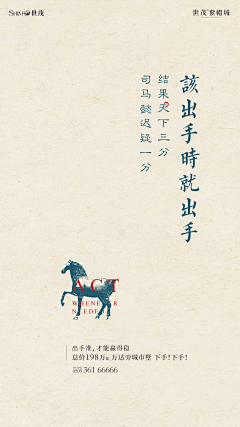 SHIMAO世茂
世茂 紫帽城
該出手時就出手
结果天下三分
司马懿迟疑一分
ACT
WHENEVER
NEEDED
出手准，才能赢得稳
总价198万起 万达旁城市墅 下手！下手！
361 66666